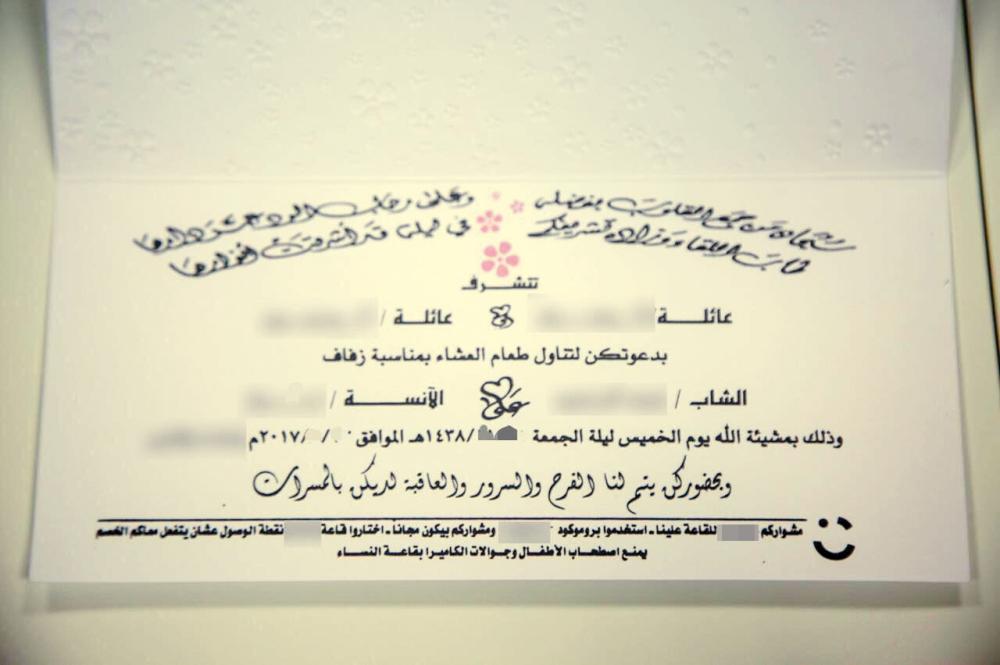 سبحان من جمع القلوب بفضله
طاب اللقاء وزاده تشريفكم
في ليلة قد أشرقت أنوارها
تتشـــرف
عائلـــــة/ عائلـــة /
بدعوتكن لتناول طعام العشاء بمناسبة زفاف
الشاب / على الآنســـــة /
وذلك بمشيئة الله يوم الخميس ليلة الجمعة /١٤٣٨هـ الموافق / /٢٠١٧م
وبحضوركن يتم لنا الفرح والسرور والعاقبة لديكن بالمسرات
مشواركم للقاعة علينا - استخدموا بروموكود ومشواركم بيكون مجاناً - اختاروا قاعة نقطة الوصول عشان يتفعل معاكم الخصم
يمنع اصطحاب الأطفال وجوالات الكاميرا بقاعة النساء